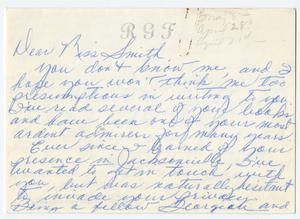 RGF
April 28
Dear Miss Smith.
You don't know me and I
hope you won't think me too
presumptious in writing to you.
I've read several of your books
and have been one of your most
ardent admirers for many years.
Ever since I learned of your
presence in Jacksonville, I've
wanted to get in touch with
you but was naturally hesitant
to invade your privacy.
Being a fellow Georgian and